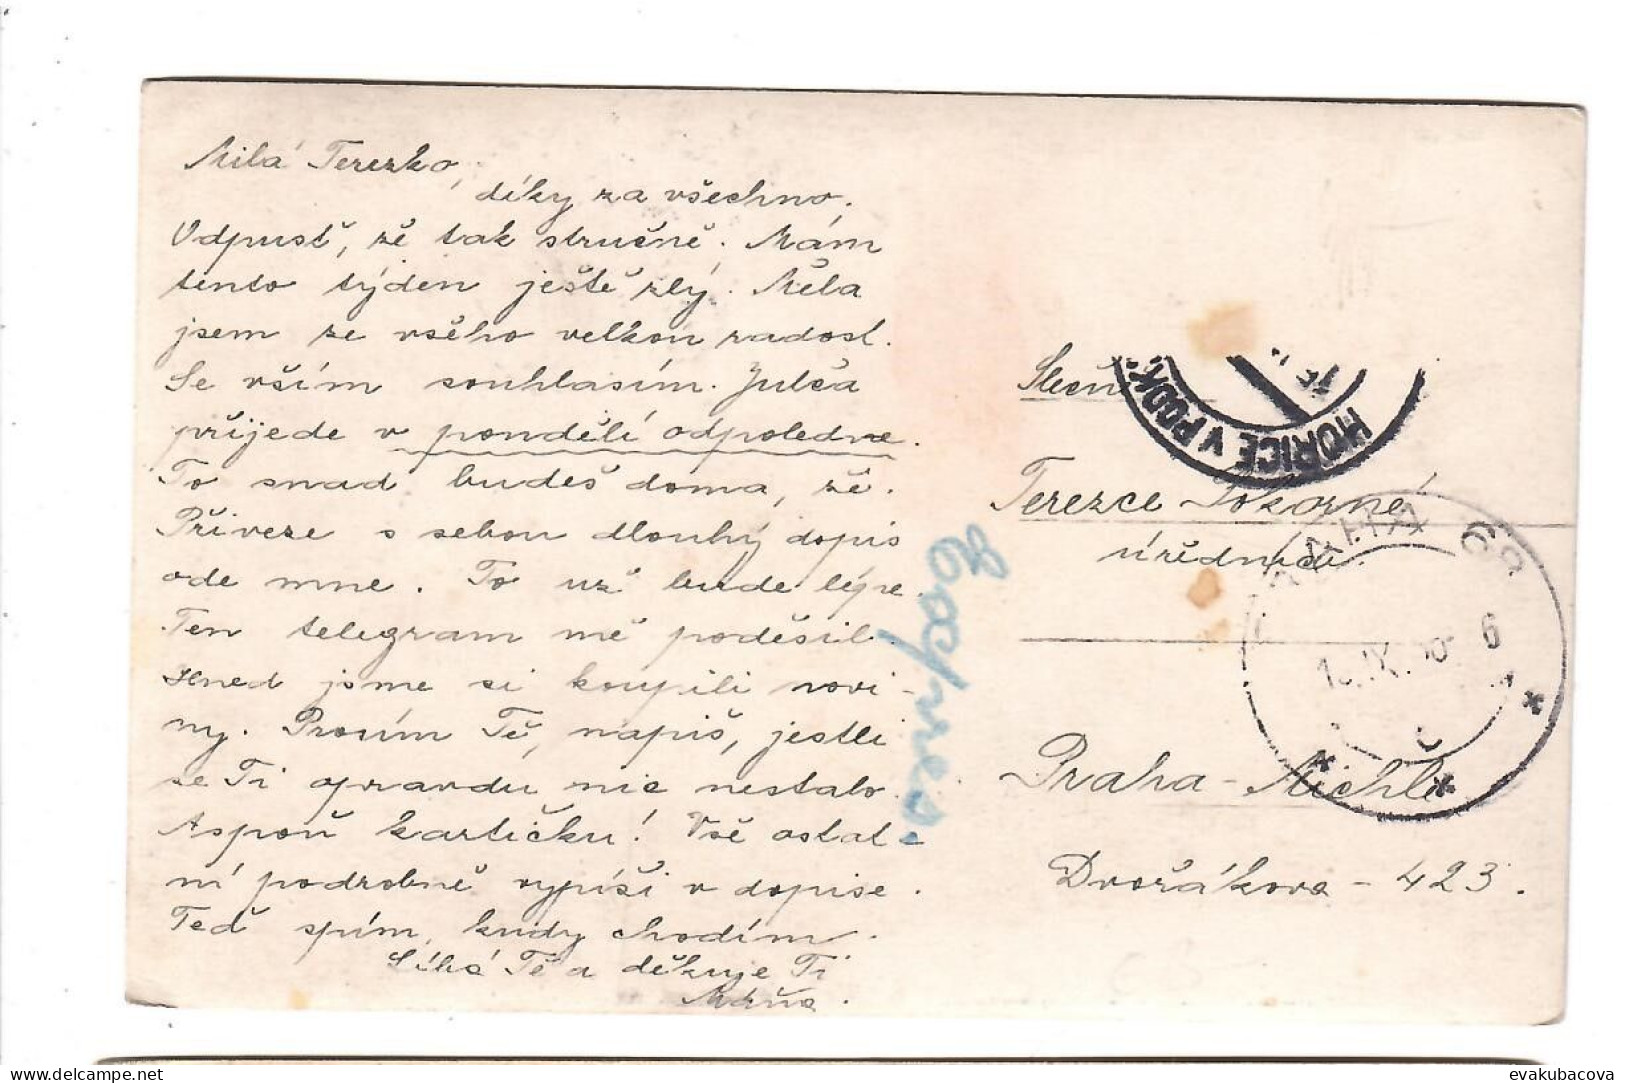 Milá Terezko,
díky za všechno.
Odpusť, že tak stručně. Mám
tento týden ještě zlý. Měla
jsem ze všeho velkou radost.
Se vším souhlasím. Julča
přijede v pondělí odpoledne.
To snad budeš doma, že.
Přiveze s sebou dlouhý dopis
ode mne. To už bude lépe.
Ten telegram mě poděsil.
Hned jsme si koupili novi-
ny. Prosím Tě, napiš, jestli
se Ti opravdu nic nestalo.
Aspoň kartičku! Vše ostat-
ní podrobně vypíši v dopise.
Teď spím, kudy chodím.
Líbá Tě a děkuje Ti
Máňa.
Expres.
HOŘICE V PODK.
Terezce Pokorné
úřednici
PRAHA
6
Praha-Michle
Dvořákova - 423.
evakubacova